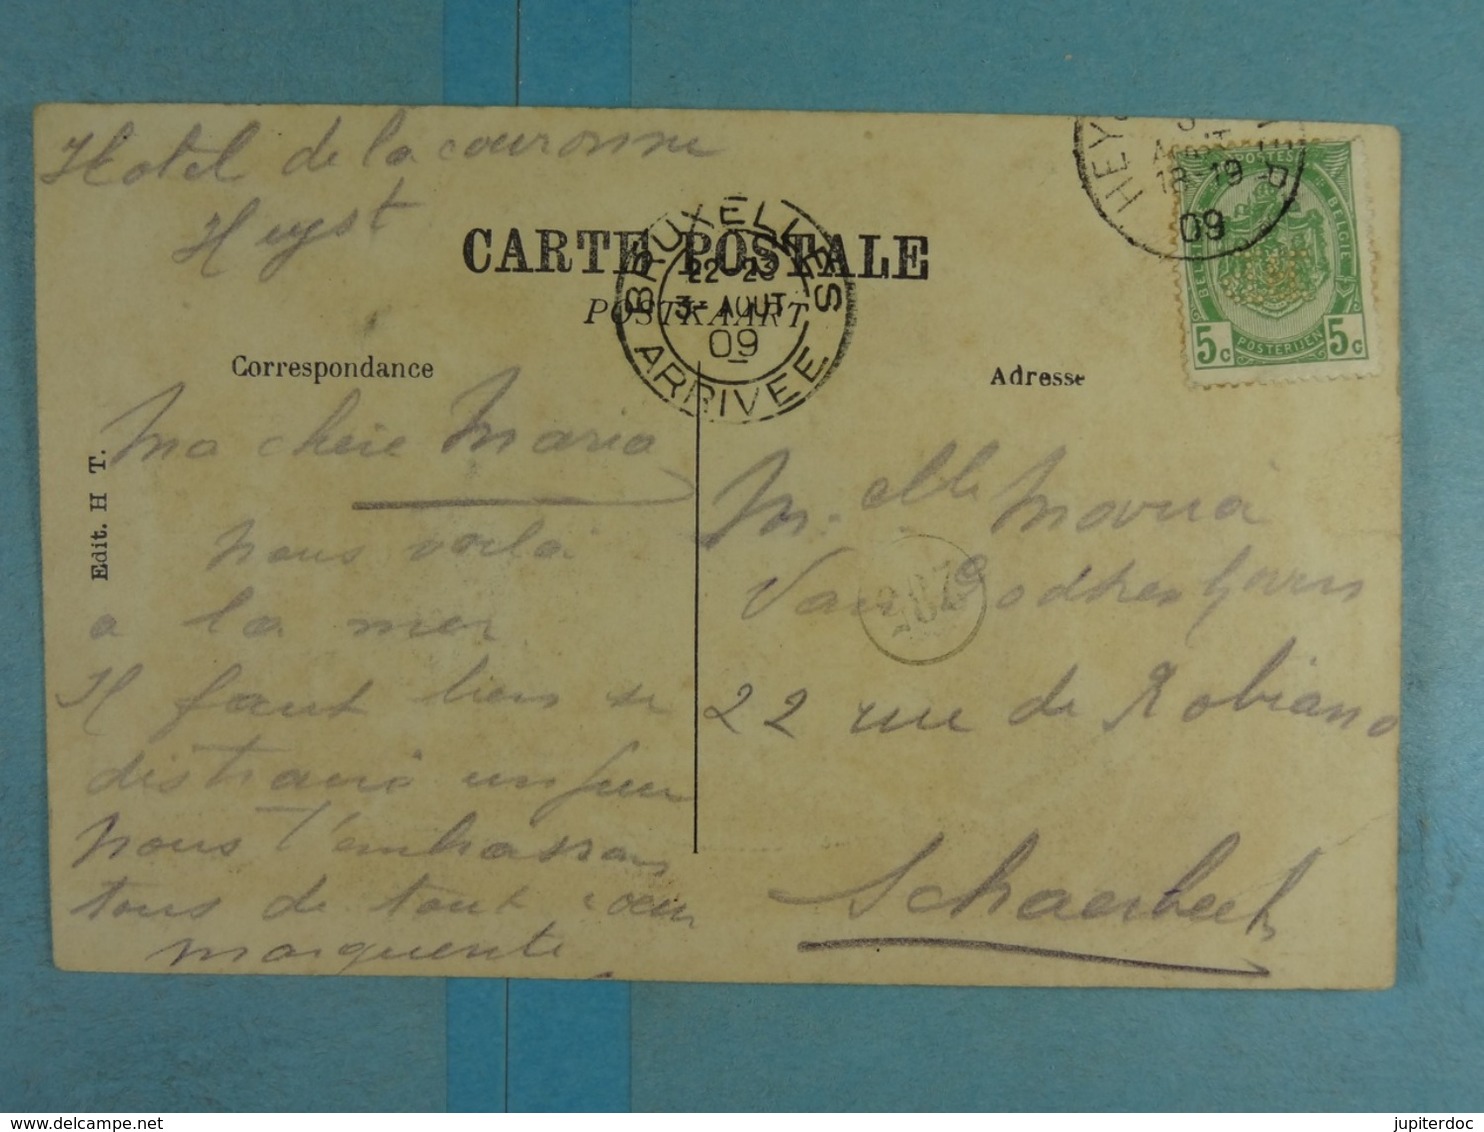 Hotel de la couronne
Heyst
CARTE POSTALE
POSTKAART
Correspondance
Adresse
Edit. H T.
BRUXELLES
22-23
3- AOUT
09
ARRIVEE
HEYS
18-19
09
POSTES
BELGIQUE
BELGIE
5c
POSTERIJEN
5c
Ma chère Maria
nous voilà
a la mer
Il faut bien se
distraire un peu
nous t'embrassons
tous de tout cœur
Marguerite
Melle Maria
Van
22 rue de Robiano
Schaerbeek
delcampe.net
jupiterdoc